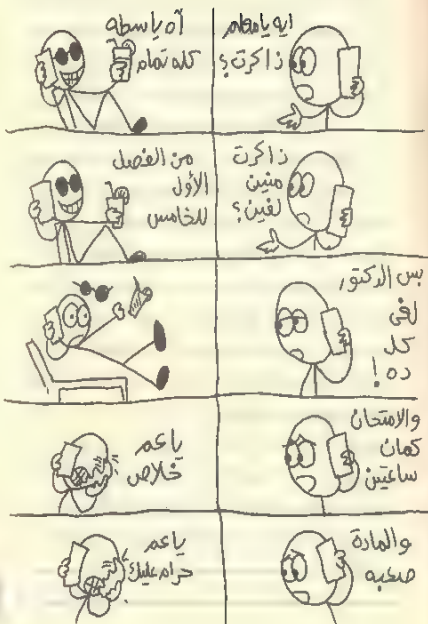 ايه يا معلم
ذاكرت؟
آه ياسطه
كله تمام
ذاكرت
منين
لفين؟
من الفصل
الأول
للخامس
بس الدكتور
لغى
كل
ده!
والامتحان
كمان
ساعتين
ياعم
خلاص
والمادة
صعبه
ياعم
حرام عليك